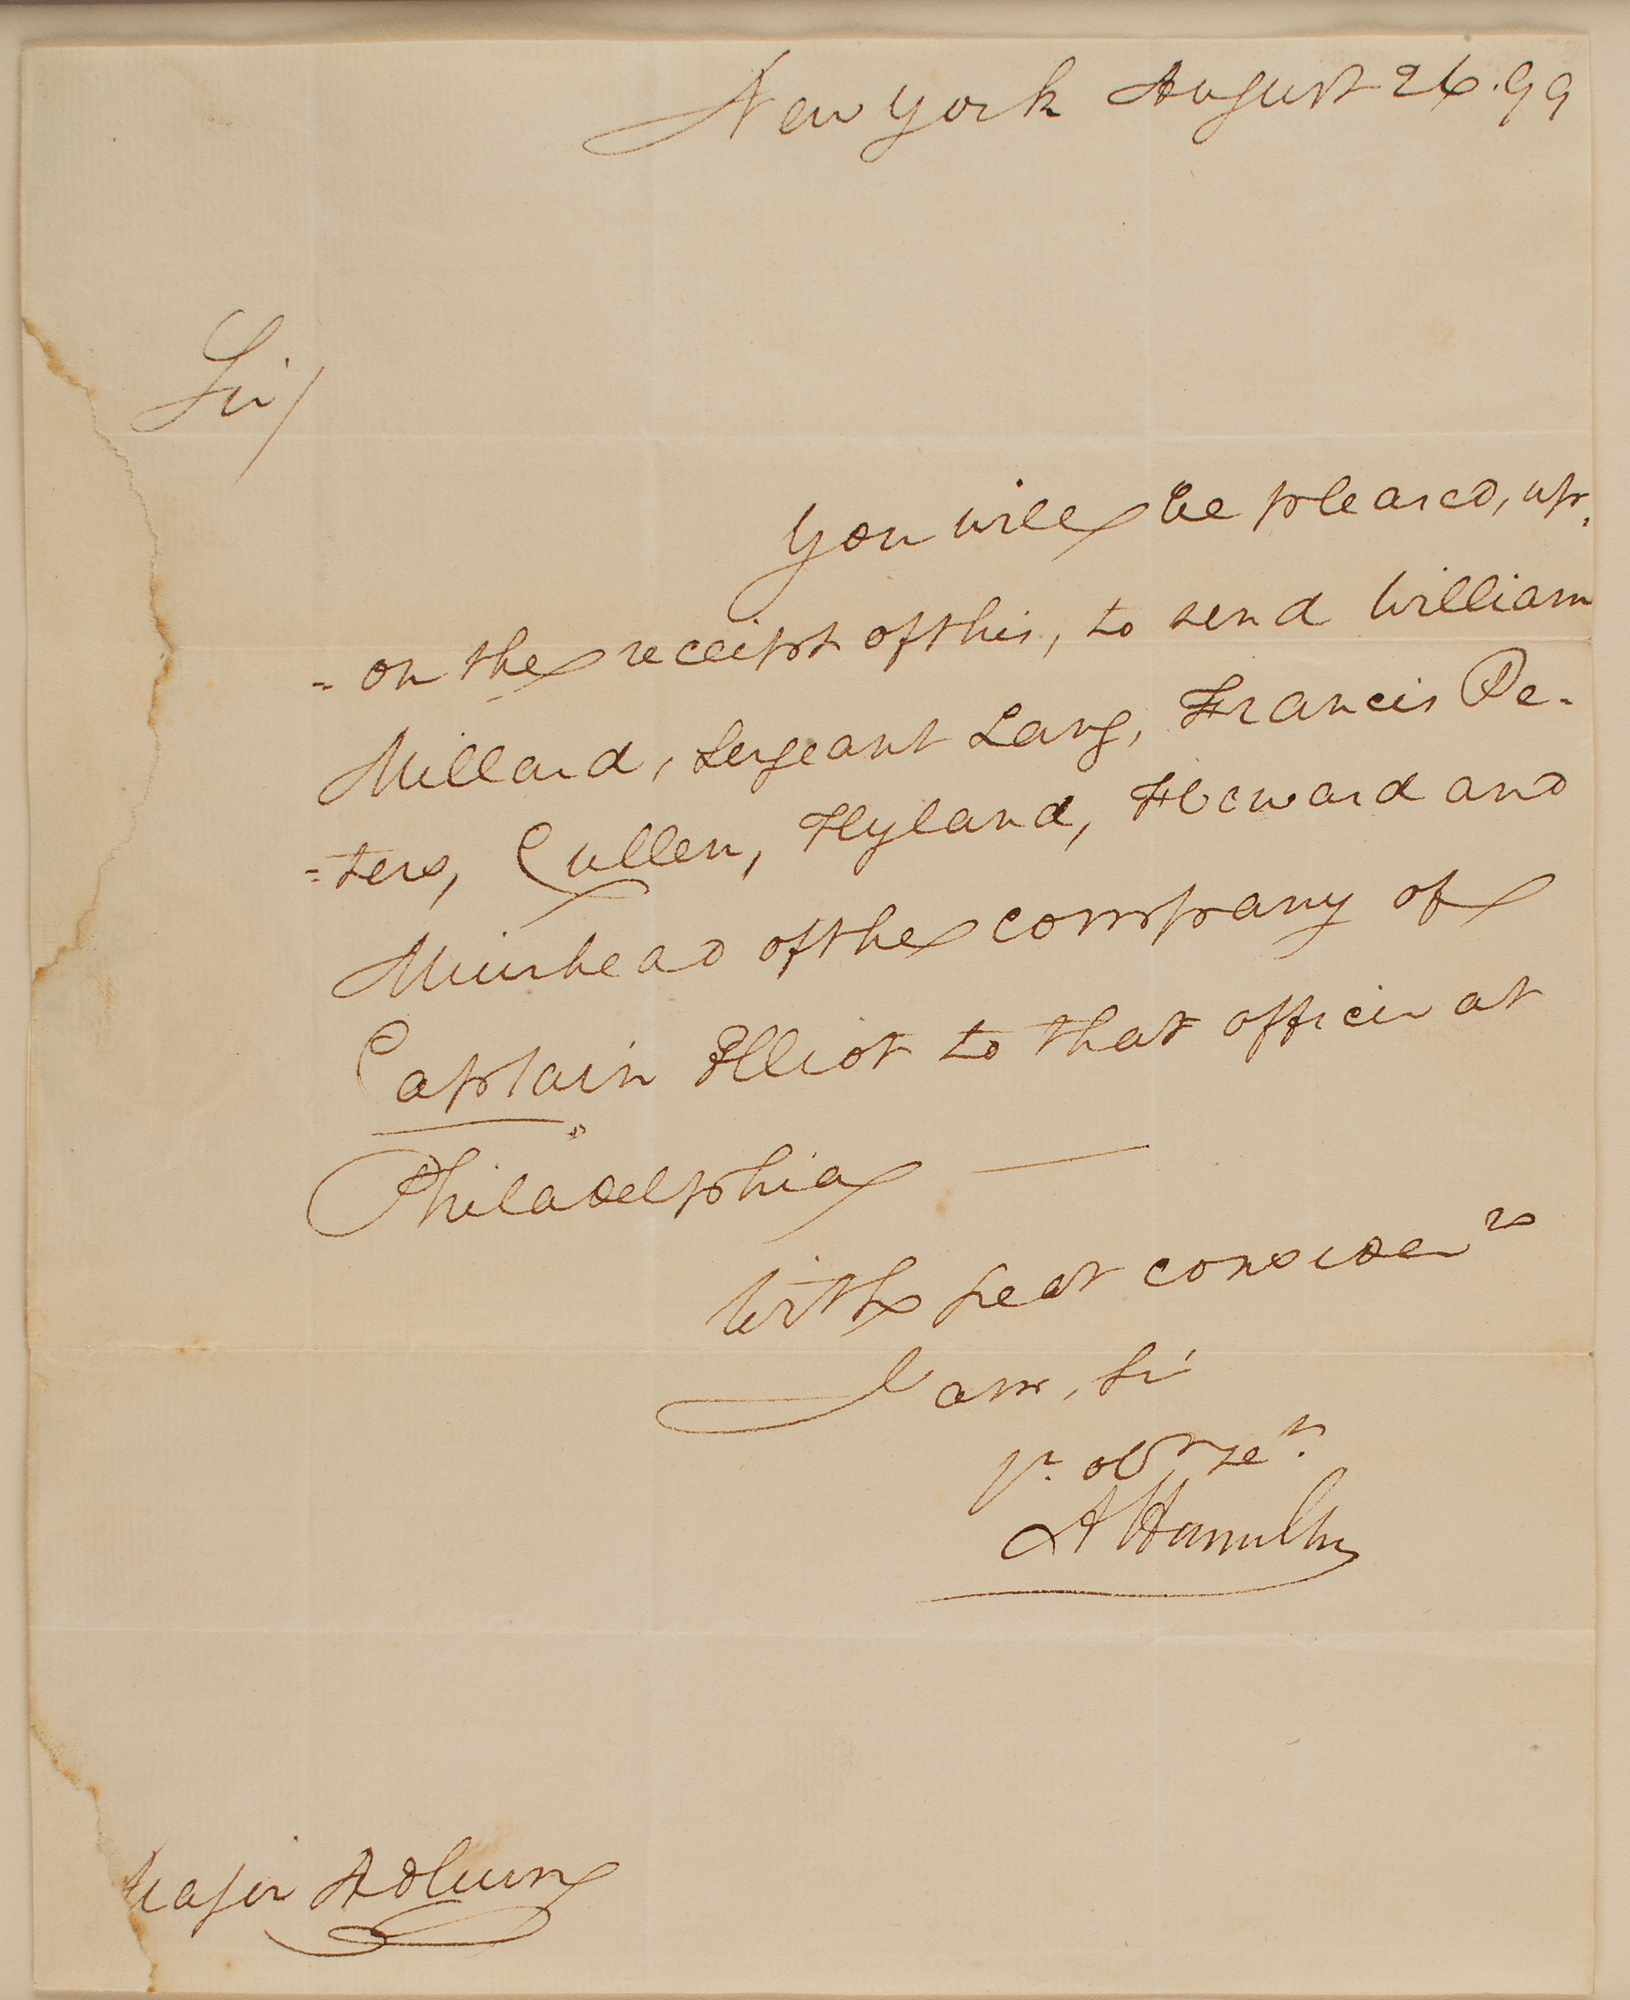 New York August 26. 99
Sir/
You will be pleased, up-
=on the receipt of this, to send William
Millard, Sergeant Lang, Francis Pe-
=ters, Cullen, Hyland, Howard and
Muirhead of the company of
Captain Elliot to that officer at
Philadelphia —
With great consider[n]
I am, Sir
yr. obt set.
A Hamilton
Major Adlum